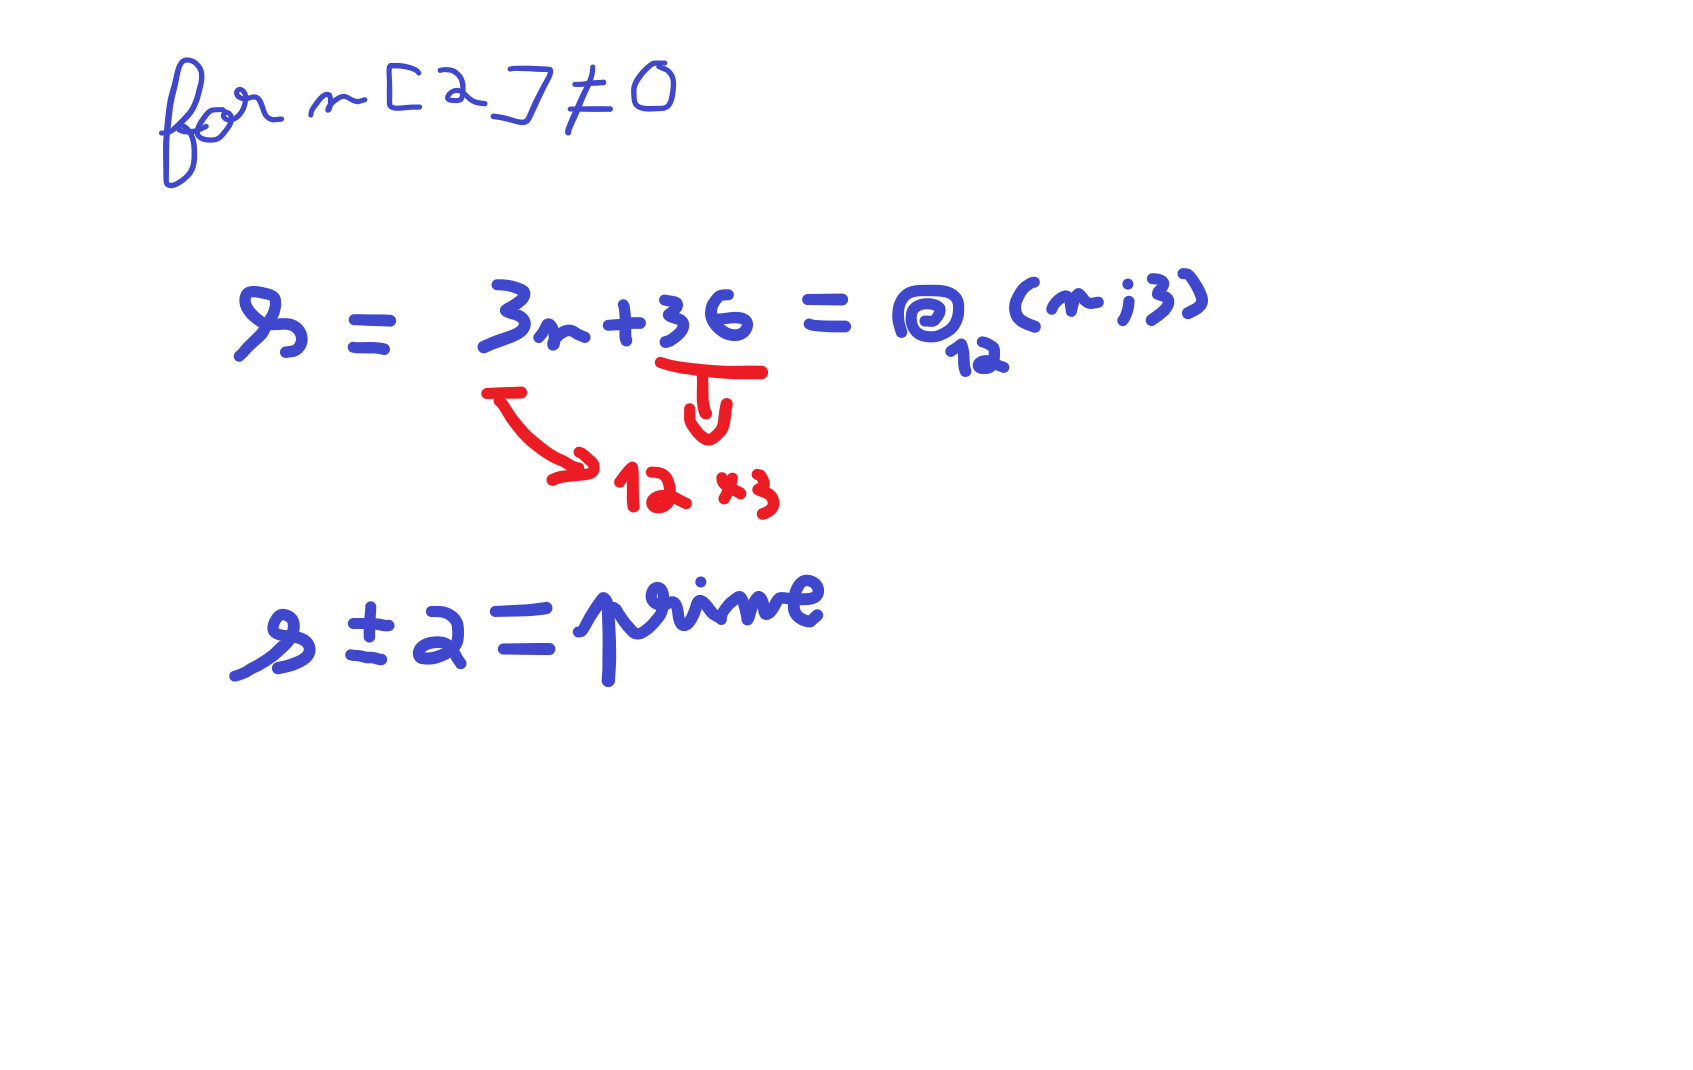 for n [2] ≠ 0
r = 3n + 36 = @12 (n; 3)
12 x 3
r ± 2 = prime